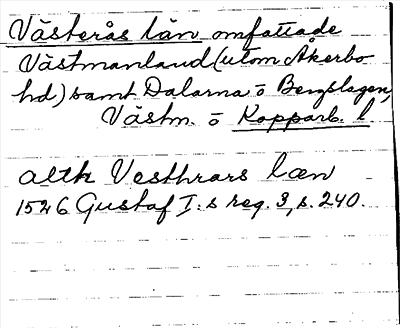 Västerås län omfattade
Västmanland (utom Åkerbo
hd) samt Dalarna o Bergslagen,
Västm. o Kopparb. l.
altk Vesthrars læn
1526 Gustaf I:s reg. 3, s. 240.